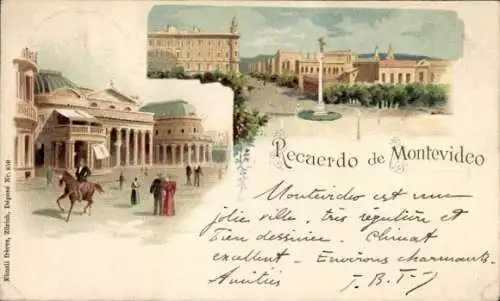 Recuerdo de Montevideo
Montevideo est une
jolie ville, très régulière et
bien dessinée. Climat
excellent. Environs charmants.
Amitiés T. B. T-J
Künzli frères, Zürich, Déposé Nr. 850